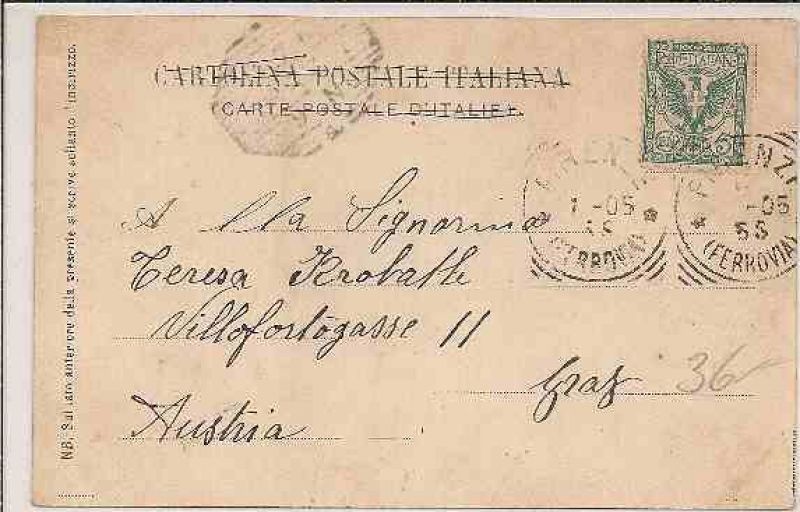 CARTOLINA POSTALE ITALIANA
(CARTE POSTALE D'ITALIE).
POSTE ITALIANE
CENT. 5
FIRENZE
1 -05
(FERROVIA)
FIRENZE
-05
5S
(FERROVIA)
A lla Signorina
Teresa Krobath
Villefortgasse 11
Graz
36
Austria
NB. Sul lato anteriore della presente si scrive soltanto l'indirizzo.